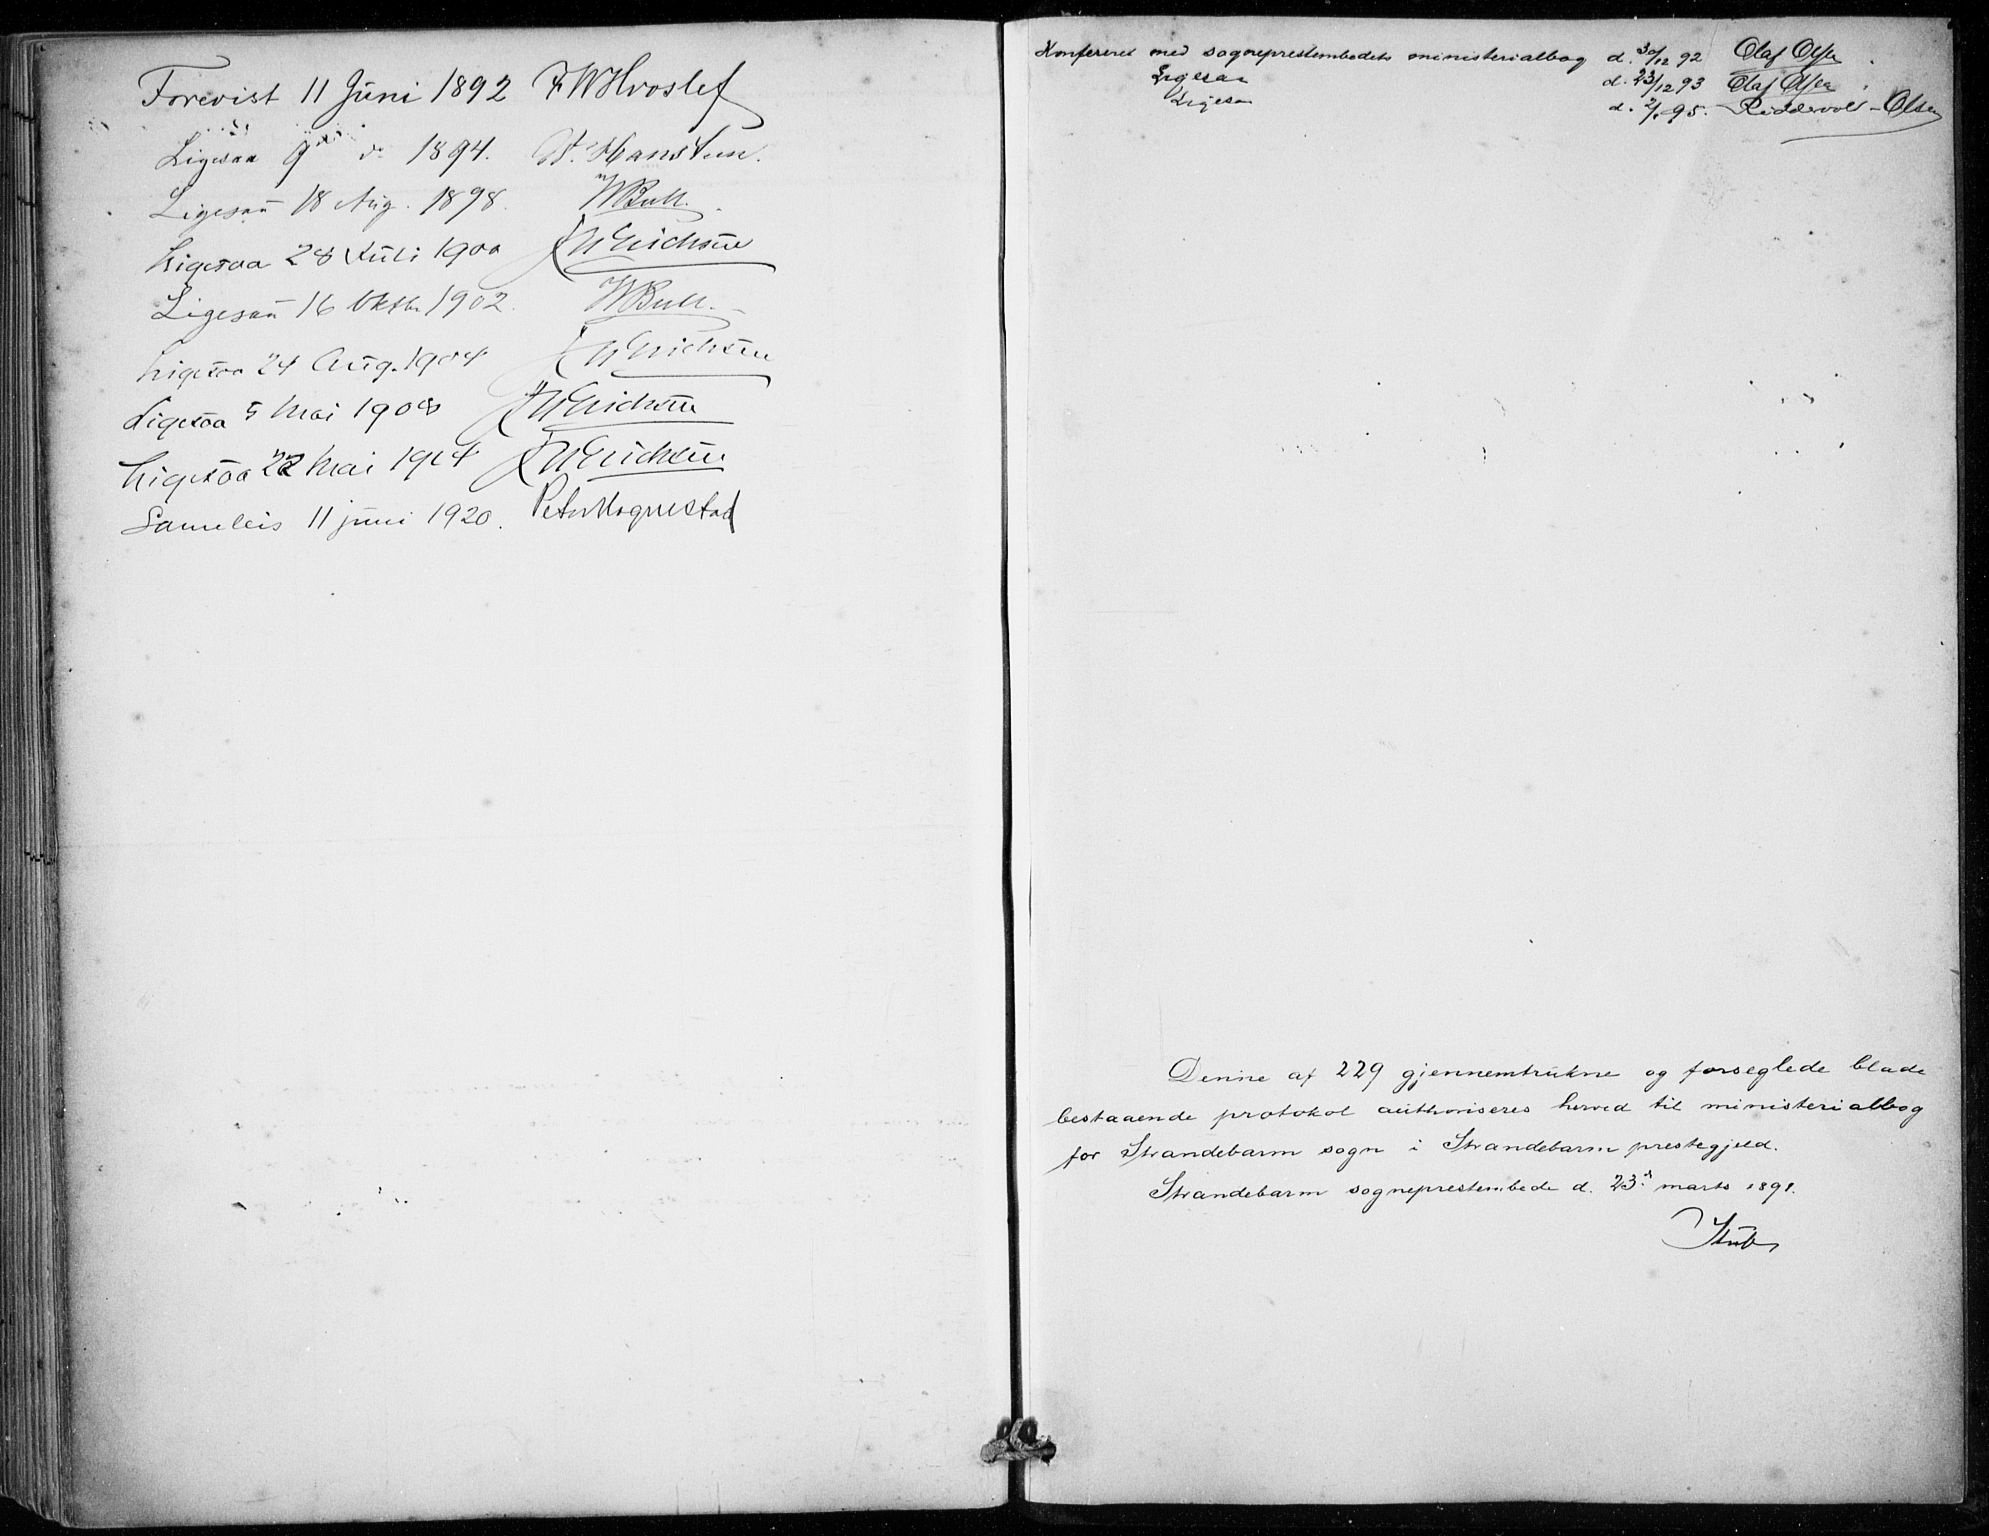 Forevist 11 Juni 1892 F W Hvoslef
Ligesaa 9 do 1894. B. Hansteen.
Ligesaa 18 Aug. 1898. W Bull.
Ligesaa 28 Juli 1900 J W Erichsen
Ligesaa 16 Oktbr 1902. W Bull.
Ligesaa 24 Aug. 1904 J W Erichsen
Ligesaa 5 Mai 1908 J W Erichsen
Ligesaa 22 Mai 1914 J W Erichsen
Sameleis 11 juni 1920. Peter Hognestad
Konfereret med sogneprestembedets ministerialbog d. 30/12 92 Olaf Olsen
Ligesaa d. 23/12 93 Olaf Olsen
Ligesaa d. 2/1 95. Riddervold-Olsen
Denne af 229 gjennemtrukne og forseglede blade
bestaaende protokol authoriseres herved til ministerialbog
for Strandebarm sogn i Strandebarm prestegjeld.
Strandebarm sogneprestembede d. 23d marts 1891.
Stub